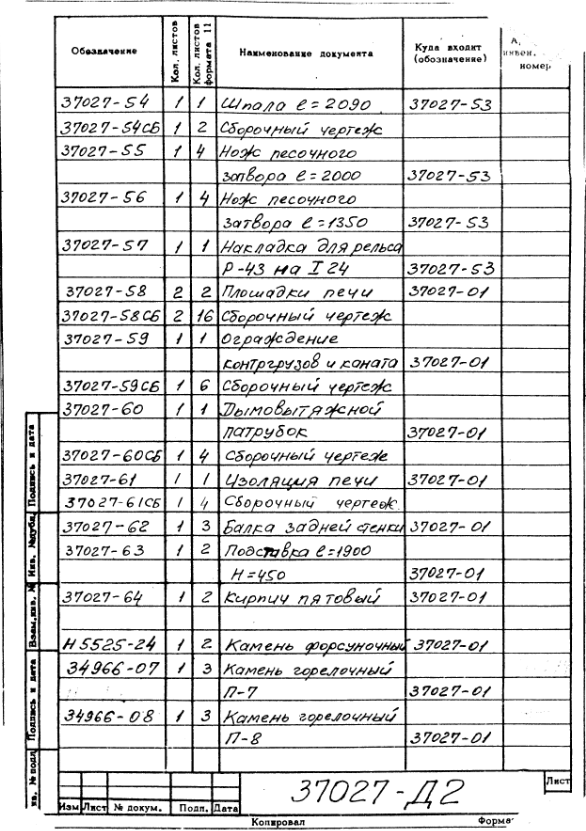 Обозначение Кол. листов Кол. листов формата 11 Наименование документа Куда входит (обозначение) А. инвен. номер
37027-54 1 1 Шпала ℓ=2090 37027-53
37027-54СБ 1 2 Сборочный чертеж
37027-55 1 4 Нож песочного
затвора ℓ=2000 37027-53
37027-56 1 4 Нож песочного
затвора ℓ=1350 37027-53
37027-57 1 1 Накладка для рельса
Р-43 на I 24 37027-53
37027-58 2 2 Площадки печи 37027-01
37027-58СБ 2 16 Сборочный чертеж
37027-59 1 1 Ограждение
контргрузов и каната 37027-01
37027-59СБ 1 6 Сборочный чертеж
37027-60 1 1 Дымовытяжной
патрубок 37027-01
37027-60СБ 1 4 Сборочный чертеж
37027-61 1 1 Изоляция печи 37027-01
37027-61СБ 1 4 Сборочный чертеж
37027-62 1 3 Балка задней стенки 37027-01
37027-63 1 2 Подставка ℓ=1900
Н=450 37027-01
37027-64 1 2 Кирпич пятовый 37027-01
Н5525-24 1 2 Камень форсуночный 37027-01
34966-07 1 3 Камень горелочный
П-7 37027-01
34966-08 1 3 Камень горелочный
П-8 37027-01
Подпись и дата
Инв. №дубл.
Взам.инв. №
Подпись и дата
нв. № подл
37027-Д2
Лист
Изм Лист № докум. Подп. Дата
Копировал Форма